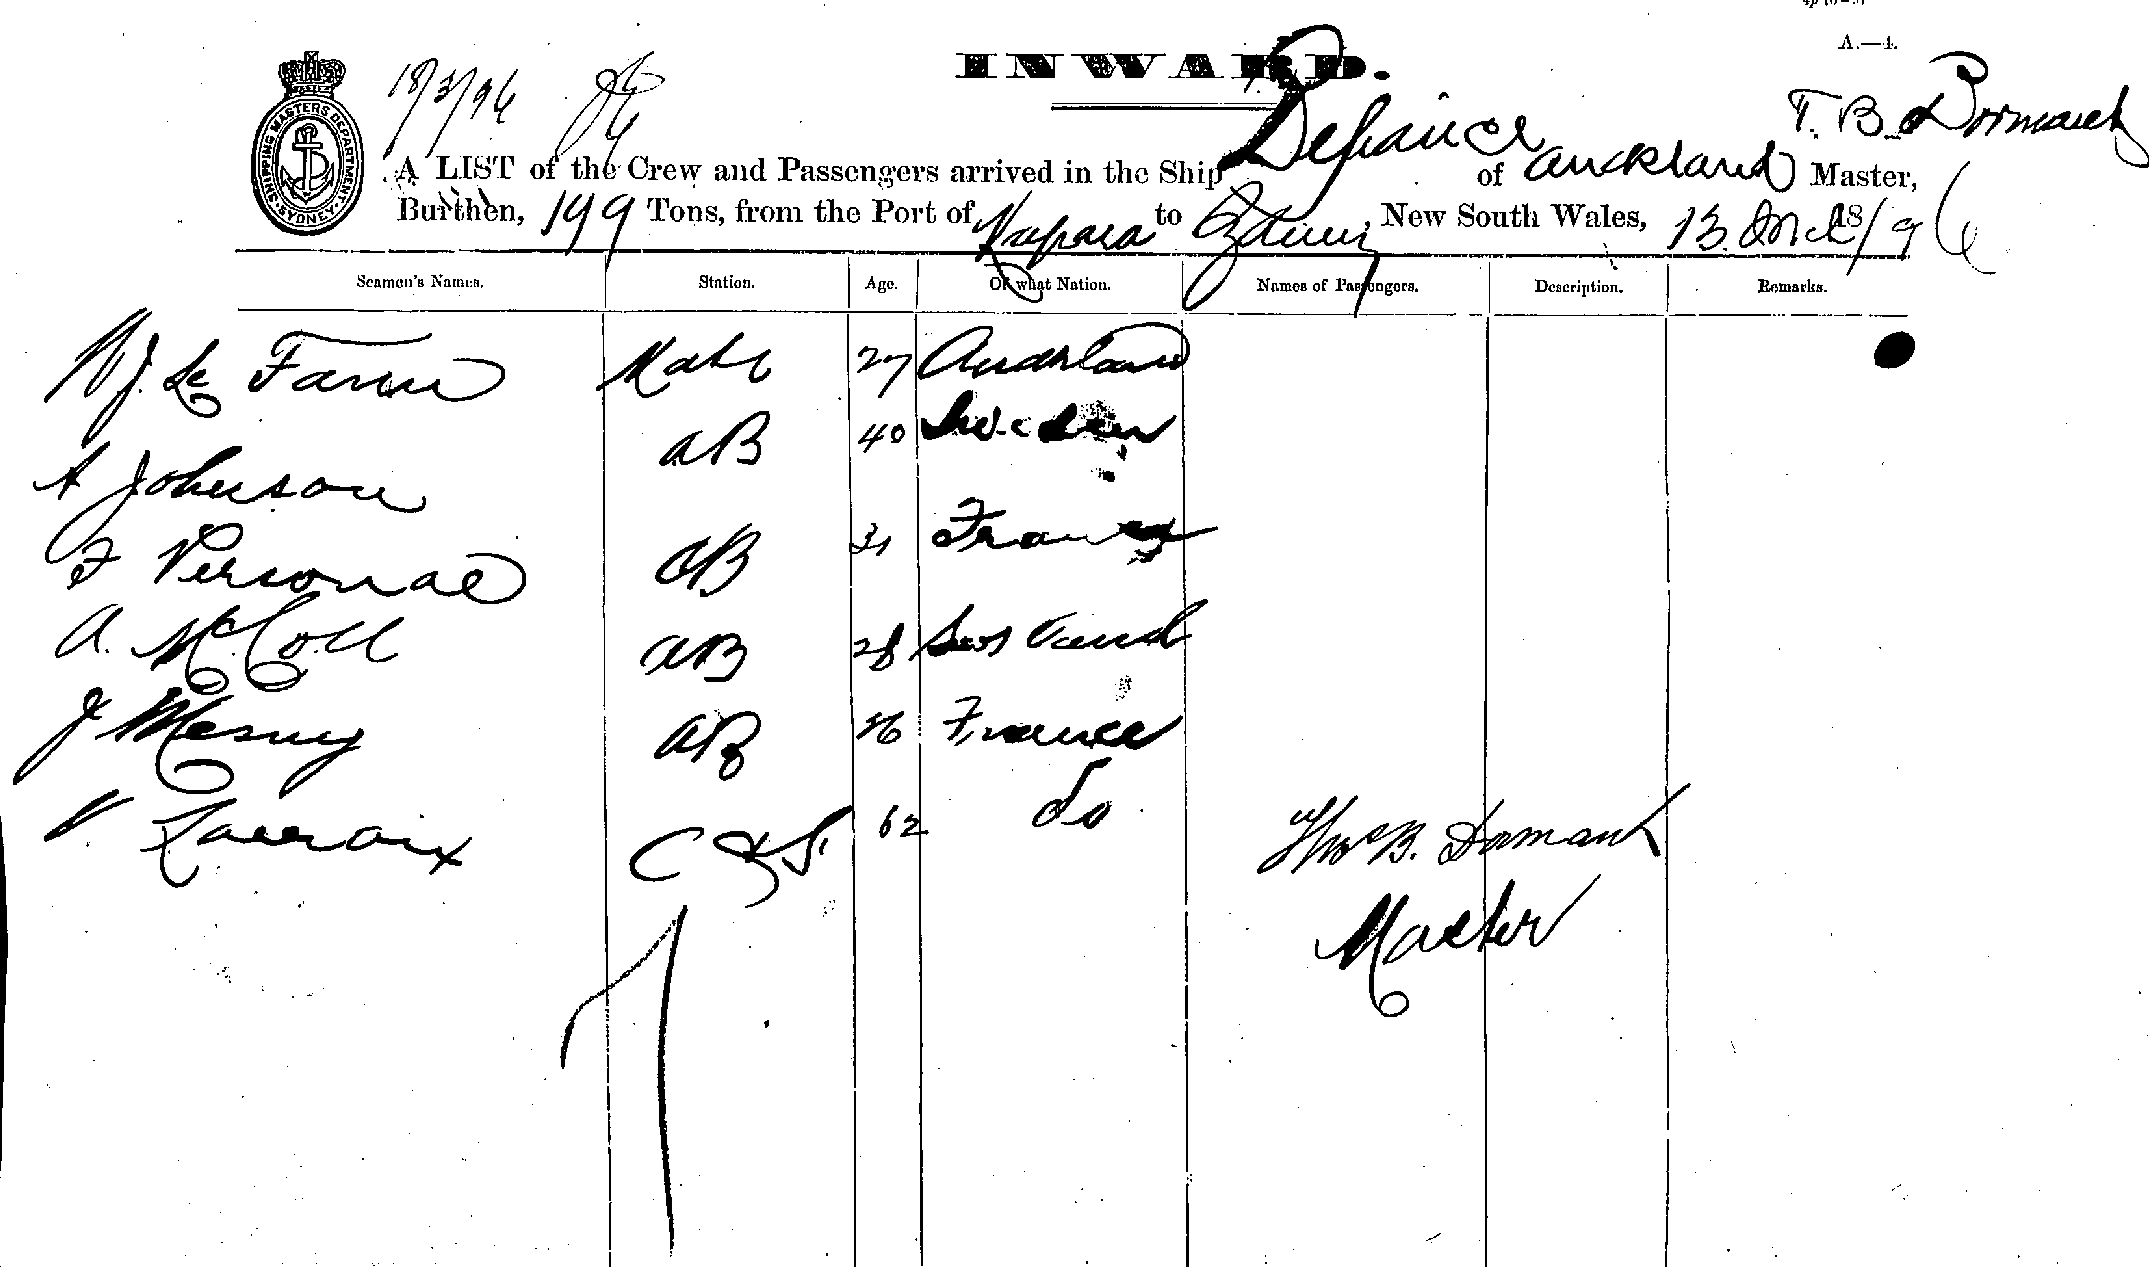 A.—4.
INWARD.
18/3/96
SHIPPING MASTERS DEPARTMENT. SYDNEY.
T. B. Dormank
A LIST of the Crew and Passengers arrived in the Ship Defiance of Auckland Master,
Burthen, 199 Tons, from the Port of Kaipara to Sydney New South Wales, 13 Mch 18/96
Seamen's Names. Station. Age. Of what Nation. Names of Passengers. Description. Remarks.
J. Le Mate 27 Auckland
A Johnson AB 40 Sweden
F Personal AB 31 France
A. McColl AB 28 Scotland
J Mesny AB France
V Lacroix C & S. 62 do
Thos B. Dormank
Master